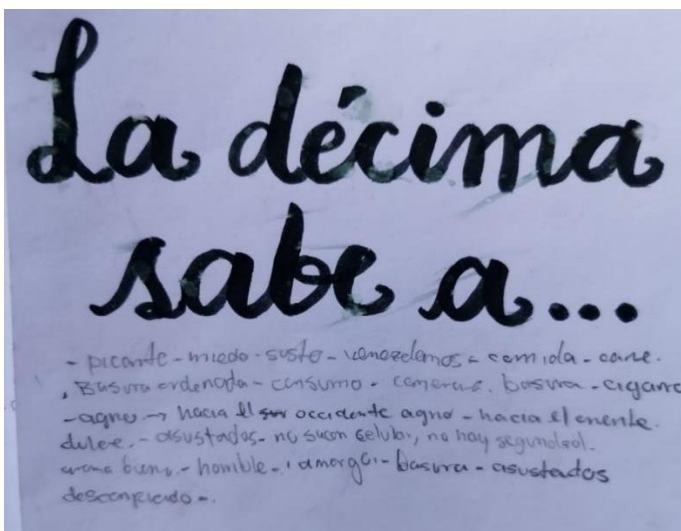 La décima
sabe a...
- picante - miedo - susto - venezolanos - comida - carne.
Basura ordenada - consumo - basura - cigarro
- agrio → hacia el sur occidente agrio - hacia el oriente.
dulce. - asustados - no sacan celular, no hay seguridad.
bien - horrible - amargo - basura - asustados